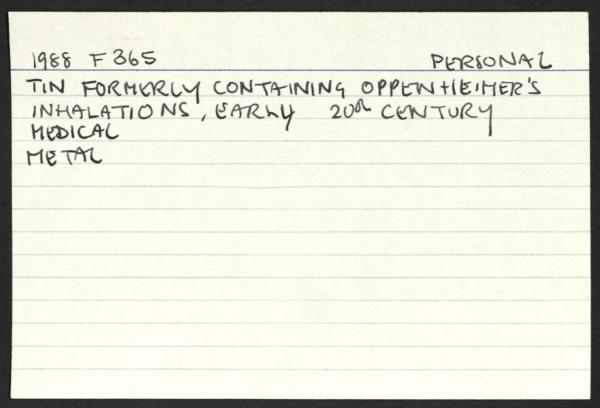 1988 F 365 PERSONAL
TIN FORMERLY CONTAINING OPPENHEIMER'S
INHALATIONS, EARLY 20th CENTURY
MEDICAL
METAL